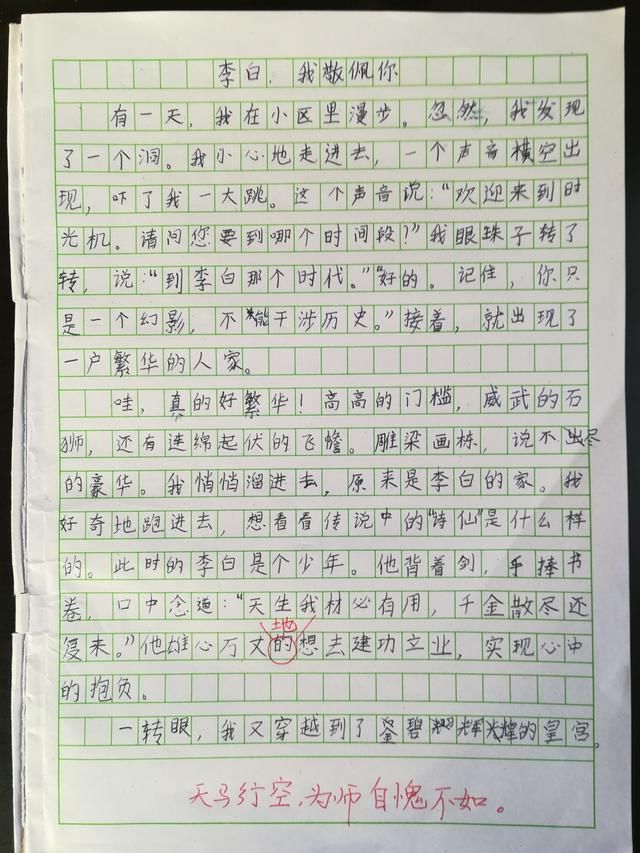 李白，我敬佩你
有一天，我在小区里漫步。忽然，我发现
了一个洞。我小心地走进去，一个声音横空出
现，吓了我一大跳。这个声音说：“欢迎来到时
光机。请问您要到哪个时间段？”我眼珠子转了
转，说：“到李白那个时代。”“好的。记住，你只
是一个幻影，不能干涉历史。”接着，就出现了
一户繁华的人家。
哇，真的好繁华！高高的门槛，威武的石
狮，还有连绵起伏的飞檐。雕梁画栋，说不出尽
的豪华。我悄悄溜进去，原来是李白的家。我
好奇地跑进去，想看看传说中的“诗仙”是什么样
的。此时的李白是个少年。他背着剑，手捧书
卷，口中念道：“天生我材必有用，千金散尽还
复来。”他雄心万丈的想去建功立业，实现心中
地
的抱负。
一转眼，我又穿越到了金碧辉光辉的皇宫。
天马行空，为师自愧不如。